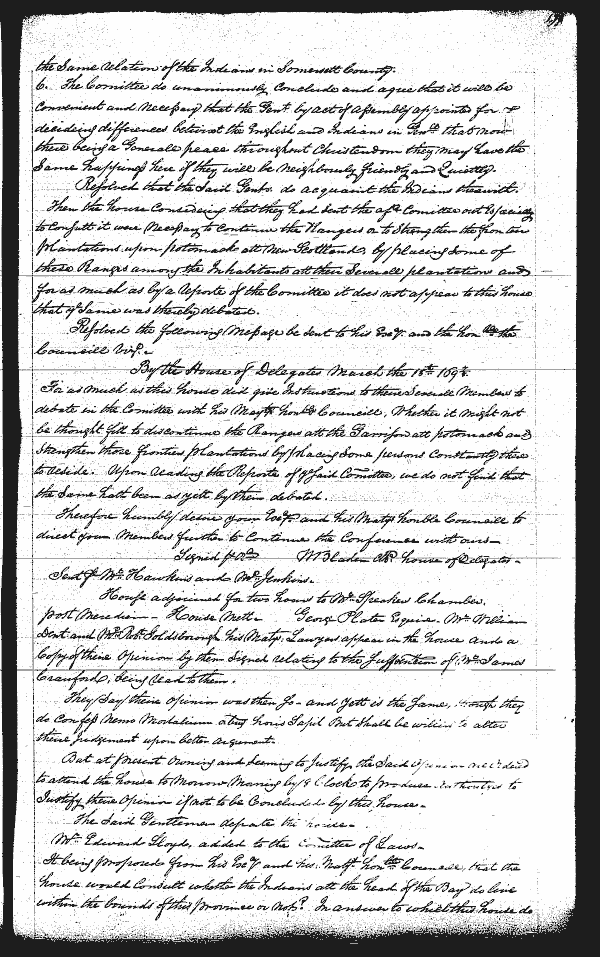 the Same relation of the Indians in Somersett County.
6. The Comittee do unanimously conclude and agree that it will be
convenient and necessary that the Gent. by act of assembly appointed for
deciding differences betwixt the English and Indians in Genll. that now
there being a Generall peace throughout Christendom they may have the
Same happiness here if they will be Neighbourly friendly and Quietly.
Resolved that the Said Gents. do acquaint the Indians therewith.
Then the house Considering that they had Sent the afd. Comittee out Especially
to Consult it were necessary to Continue the Rangers or to Strengthen the frontier
plantations upon potomack att New Scotland, by placing Some of
these Rangers among the Inhabitants att their Severall plantations and
for as much as by a Reporte of the Comittee it does not appear to this house
that ye Same was thereby debated.
Resolved the following Message be Sent to his Exy. and the hon.ble the
Councill Vizt.
By the House of Delegates March the 18th 169
For as much as this house did give Instructions to these Severall Members to
debate in the Comittee with his Majtys honble Councill, Whether it might not
be thought fitt to discontinue the Rangers att the Garrison att potomack and
Strengthen those frontier plantations by placing Some persons Constantly there
to reside. Upon reading the Reporte of ye Said Comittee, we do not find that
the Same hath been as yett by them debated.
Therefore humbly desire your Exy. and his Matys honble Councill to
direct your Members further to Continue the Conference with ours
Signed p W Bladen Clk house of Delegates
Sent p Mr. Hawkins and Mr. Jenkins.
House adjourned for two hours to Mr. Speakers Chamber.
post Meridien House Mett George Plater Esquire Mr. William
Dent and Mr. Robt. Goldsborough his Matys. Lawyers appear in the house and a
Copy of their Opinion by them Signed relating to the of Mr. James
Crauford, being read to them.
They Say their opinion was then So and yett is the Same, though they
do Confess Nemo Mortalium horis Sapit But Shall be willing to alter
their Judgement upon better argument.
But at present Owning and Seeming to Justify the Said Opinion
to attend the house to Morrow Morning by 8 Clock to produce Authorityes to
Justify their Opinion if not to be Concluded by this house
The Said Gentlemen departe the house
Mr. Edward Lloyd, added to the Comittee of Laws
It being proposed from his Exy and his Matys honble Councill, that the
house would Consult whether the Indians att the head of the Bay do live
within the bounds of this province or not? In answer to which this house do